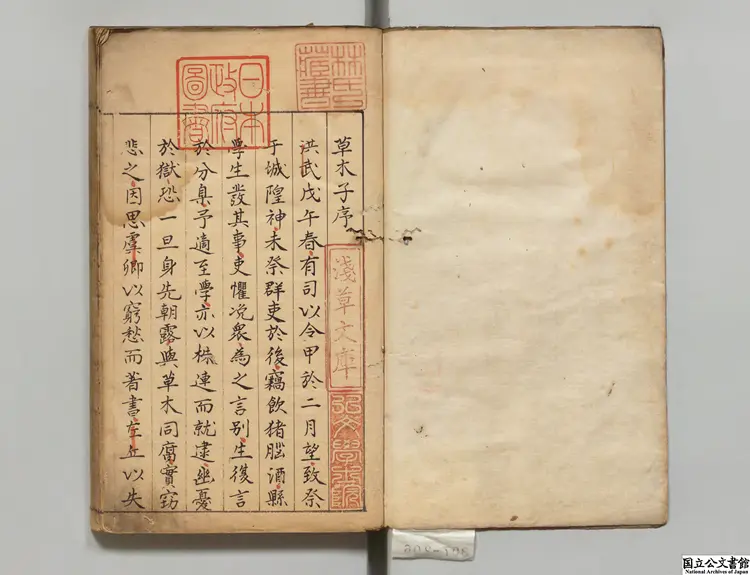 草木子序
洪武戊午春有司以令甲於二月望致祭
于城隍神未祭群吏於後竊飲猪腦酒縣
學生發其事吏懼浼衆為之言別生復言
於分臬予適至學亦以株連而就逮幽憂
於獄恐一旦身先朝露與草木同腐實竊
悲之因思虞卿以窮愁而著書左丘以失
林氏蔵書
日本政府圖書
淺草文庫
弘文學士院
200-198
国立公文書館
National Archives of Japan